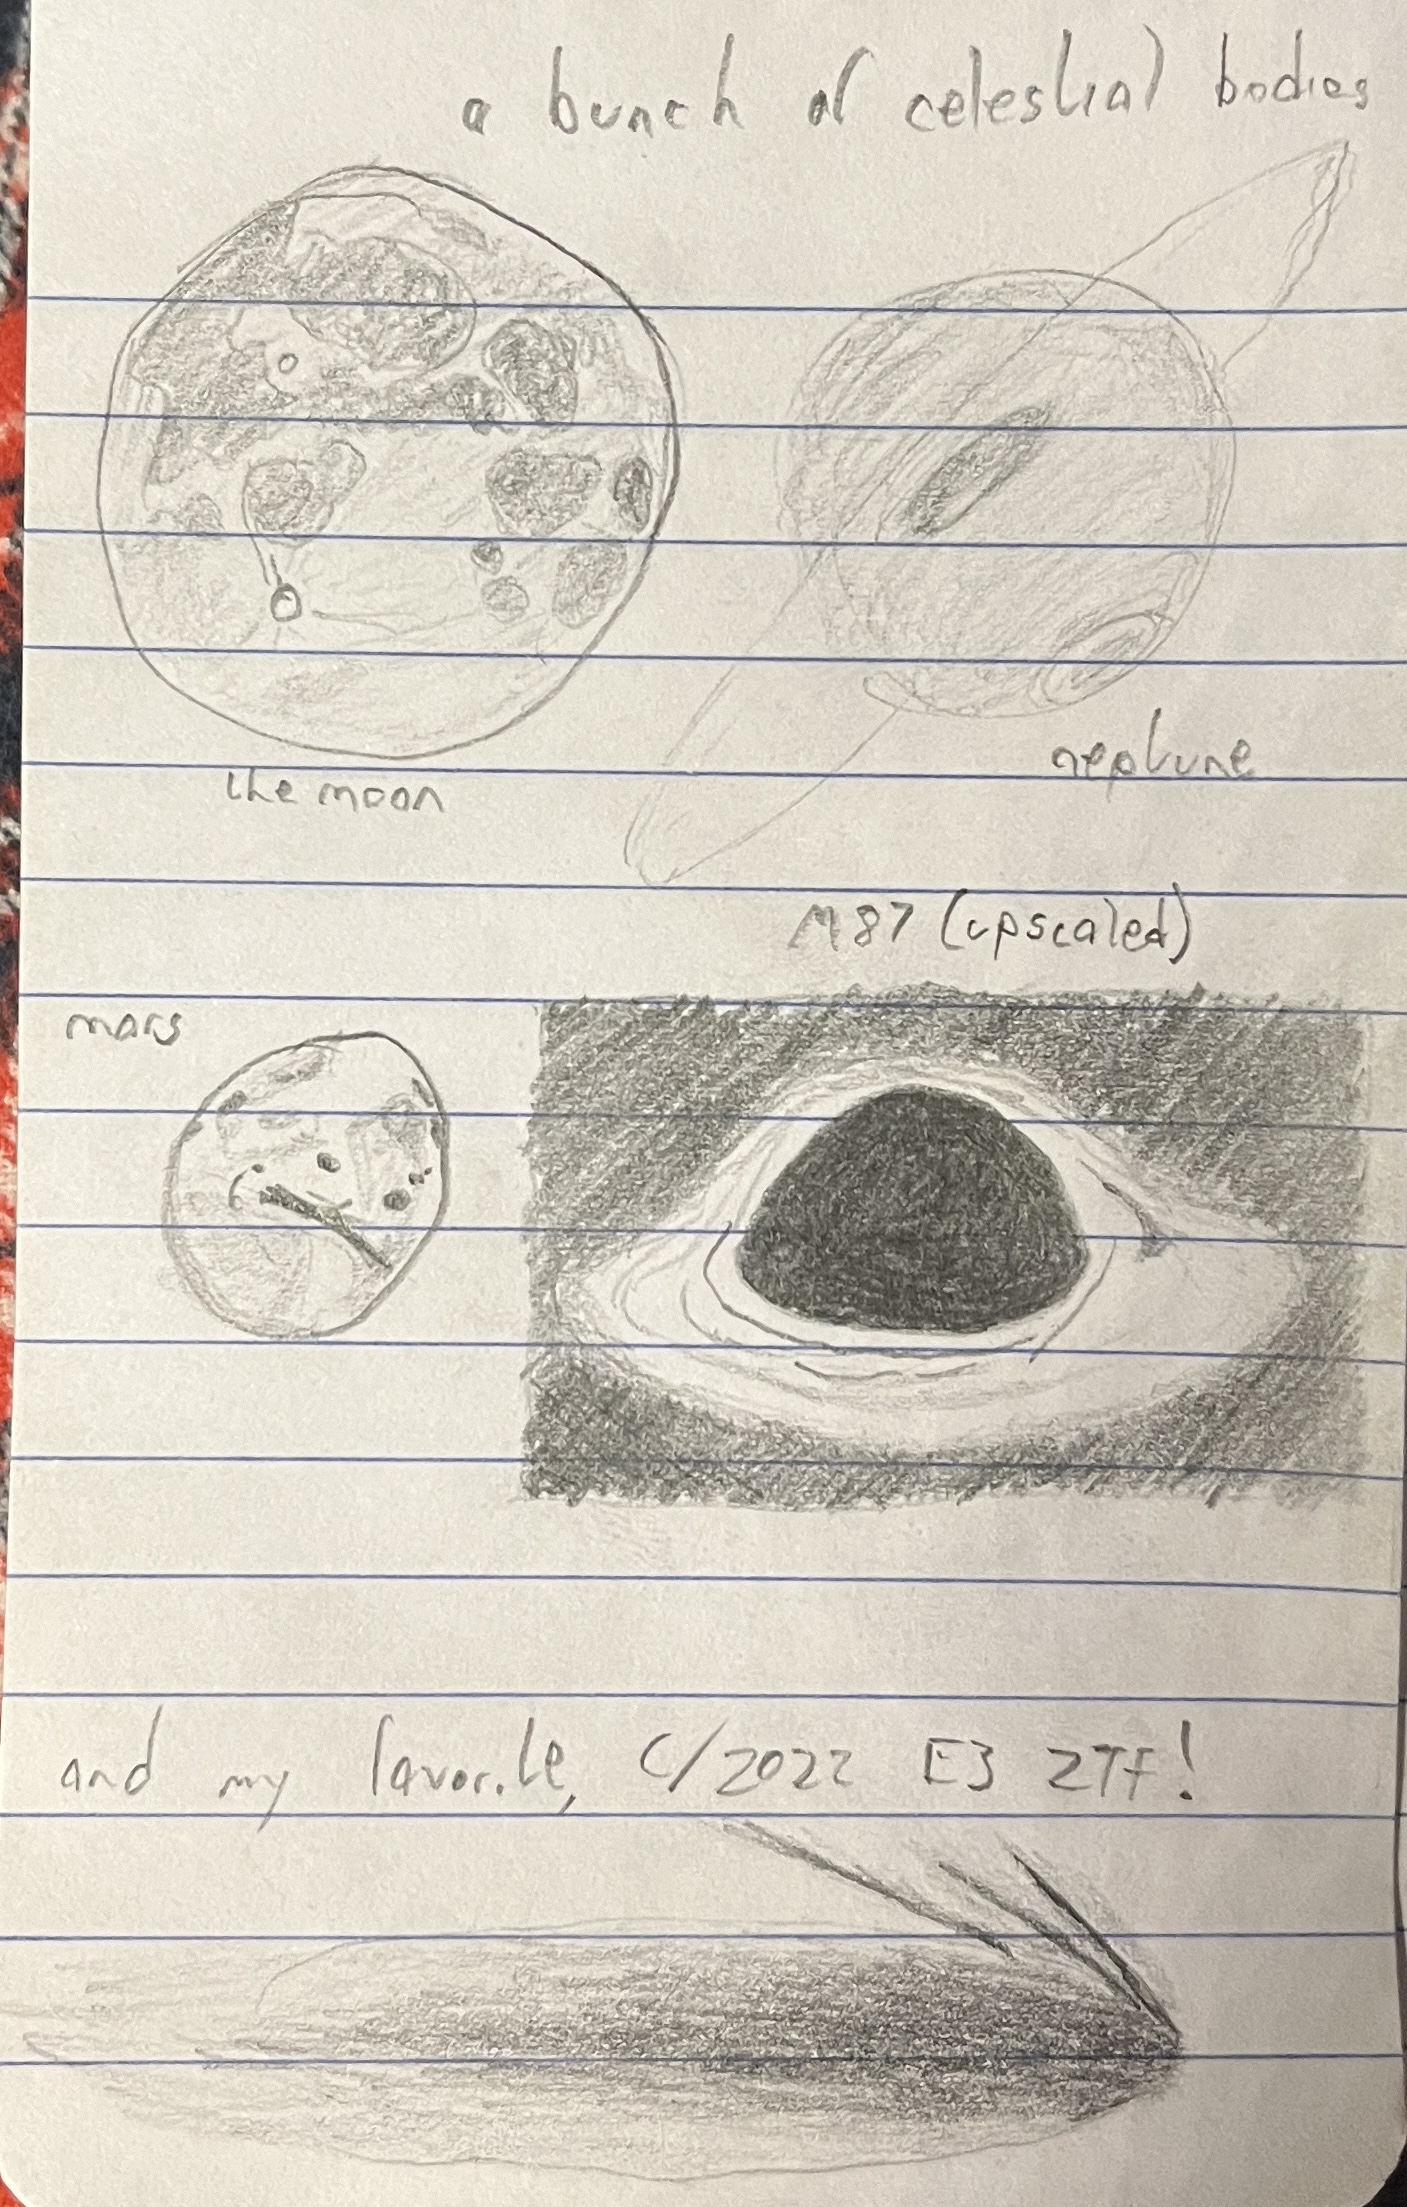 a bunch of celestial bodies
the moon
neptune
M87 (upscaled)
mars
and my favorite, C/2022 E3 ZTF!